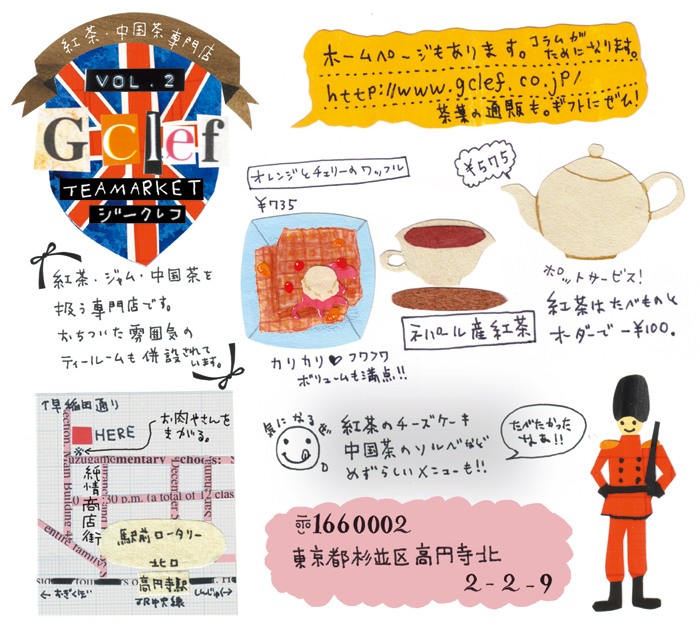 紅茶・中国茶専門店
VOL.2
G clef
TEAMARKET
ジークレコ
紅茶・ジャム・中国茶を
扱う専門店です。
おちついた雰囲気の
ティールームも併設されています。
ホームページもあります。コラムがためになります。
http://www.gclef.co.jp/
茶葉の通販も。ギフトにぜひ!
オレンジとチェリーのワッフル
¥735
カリカリ♥フワフワ
ボリュームも満点!!
¥575
ネパール産紅茶
ポットサービス!
紅茶はたべものと
オーダーで-¥100.
↑早稲田通り
HERE
お肉やさんを
まがる。
純情商店街
駅前ロータリー
北口
高円寺駅
JR中央線
←おぎくぼ
しんじゅく→
ection Main Building
uzugamementary schools:
0 p.m. (a total of 12 clas
December
entire family
気になるぜ
紅茶のチーズケーキ
中国茶のソルベなど
めずらしいメニューも!!
たべたかった
なぁ!!
〒1660002
東京都杉並区高円寺北
2-2-9